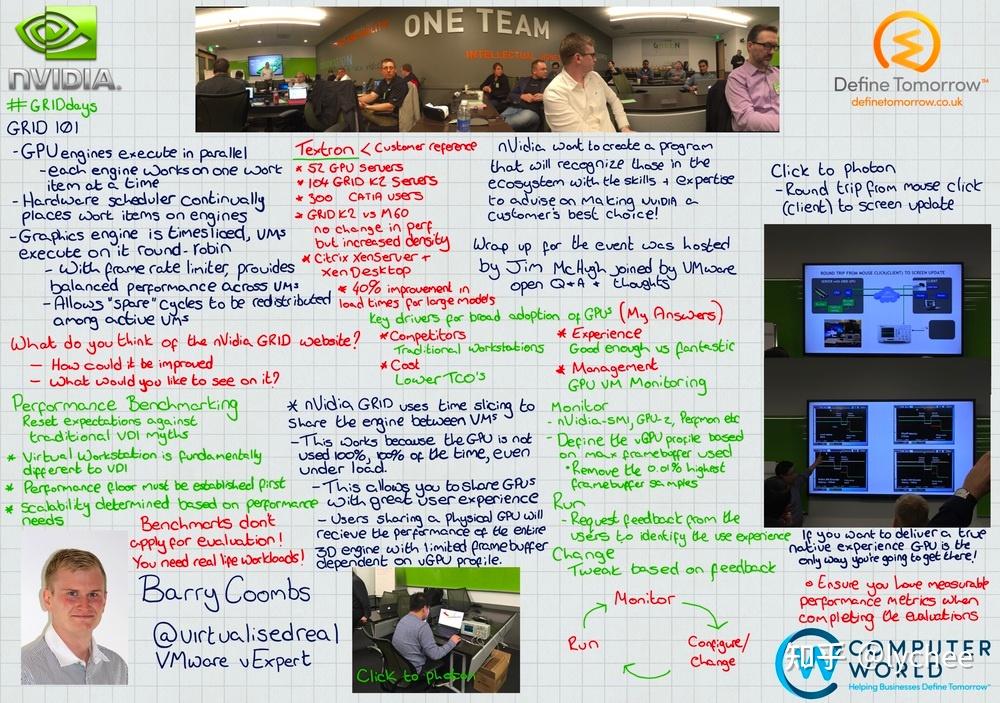 nVIDIA.
#GRIDdays
GRID 101
- GPU engines execute in parallel
- each engine works on one work
item at a time
- Hardware scheduler continually
places work items on engines
- Graphics engine is timesliced, VMs
execute on it round-robin
- With frame rate limiter, provides
balanced performance across VMs
- Allows "spare" cycles to be redistributed
among active VMs
What do you think of the nVidia GRID website?
- How could it be improved
- What would you like to see on it?
Performance Benchmarking
Reset expectations against
traditional VDI myths
* Virtual Workstation is fundamentally
different to VDI
* Performance floor must be established first
* Scalability determined based on performance
needs
Benchmarks don't
apply for evaluation!
You need real life workloads!
Barry Coombs
@virtualisedreal
VMware vExpert
ONE TEAM
INTELLECTUAL
Textron < Customer reference
* 52 GPU servers
* 104 GRID K2 Servers
* 300 CATIA users
* GRID K2 vs M60
no change in perf
but increased density
* Citrix XenServer +
XenDesktop
* 40% improvement in
load times for large models
nVidia want to create a program
that will recognize those in the
ecosystem with the skills + expertise
to advise on making NVIDIA a
customer's best choice!
Wrap up for the event was hosted
by Jim McHugh joined by VMware
open Q+A + thoughts
Key drivers for broad adoption of GPUs (My Answers)
* Competitors
Traditional workstations
* Cost
Lower TCO's
* Experience
Good enough vs fantastic
* Management
GPU VM Monitoring
* nVidia GRID uses time slicing to
share the engine between VMs
- This works because the GPU is not
used 100%, 100% of the time, even
under load.
- This allows you to share GPUs
with great user experience
- Users sharing a physical GPU will
recieve the performance of the entire
3D engine with limited framebuffer
dependent on vGPU profile.
Click to photon
Monitor
- nVidia-SMI, GPU-Z, Perfmon etc
- Define the vGPU profile based
on max framebuffer used
* Remove the 0.01% highest
framebuffer samples
Run
- Request feedback from the
users to identify the use experience
Change
Tweak based on feedback
Monitor
Run
Configure/
Change
Define Tomorrow™
definetomorrow.co.uk
Click to photon
- Round trip from mouse click
(client) to screen update
ROUND TRIP FROM MOUSE CLICK(CLIENT) TO SCREEN UPDATE
If you want to deliver a true
native experience GPU is the
only way you're going to get there!
Ensure you have measurable
performance metrics when
completing the evaluations
COMPUTER
WORLD
Helping Businesses Define Tomorrow™
知乎 @lychee